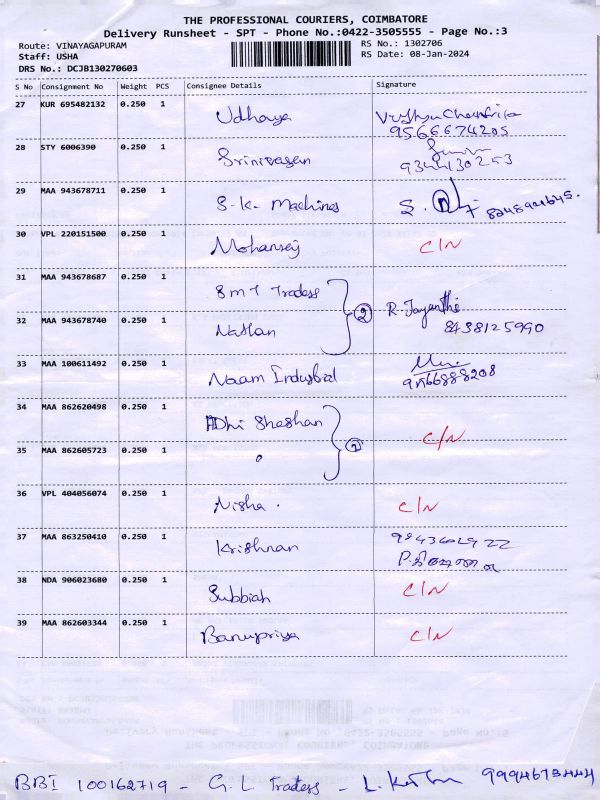 THE PROFESSIONAL COURIERS, COIMBATORE
Delivery Runsheet - SPT - Phone No.:0422-3505555 - Page No.:3
Route: VINAYAGAPURAM
RS No.: 1302706
Staff: USHA
RS Date: 08-Jan-2024
DRS No.: DCJB130270603
S No Consignment No Weight PCS Consignee Details Signature
27 KUR 695482132 0.250 1 Udhaya
9566674205
28 STY 6006390 0.250 1 Srinivasan
9344130253
29 MAA 943678711 0.250 1 S.K. Machines S.
30 VPL 220151500 0.250 1 C/N
31 MAA 943678687 0.250 1 SMT Traders R. Jayanthi
2
32 MAA 943678740 0.250 1 8438125990
33 MAA 100611492 0.250 1 Naam Industrial
9566888208
34 MAA 862620498 0.250 1 ADhi Sheshan
2 C/N
35 MAA 862605723 0.250 1 "
36 VPL 404056074 0.250 1 Nisha. C/N
37 MAA 863250410 0.250 1 Krishnan
38 NDA 906023680 0.250 1 Subbiah C/N
39 MAA 862603344 0.250 1 Banupriya C/N
BBI 100162719 - G.L Traders -